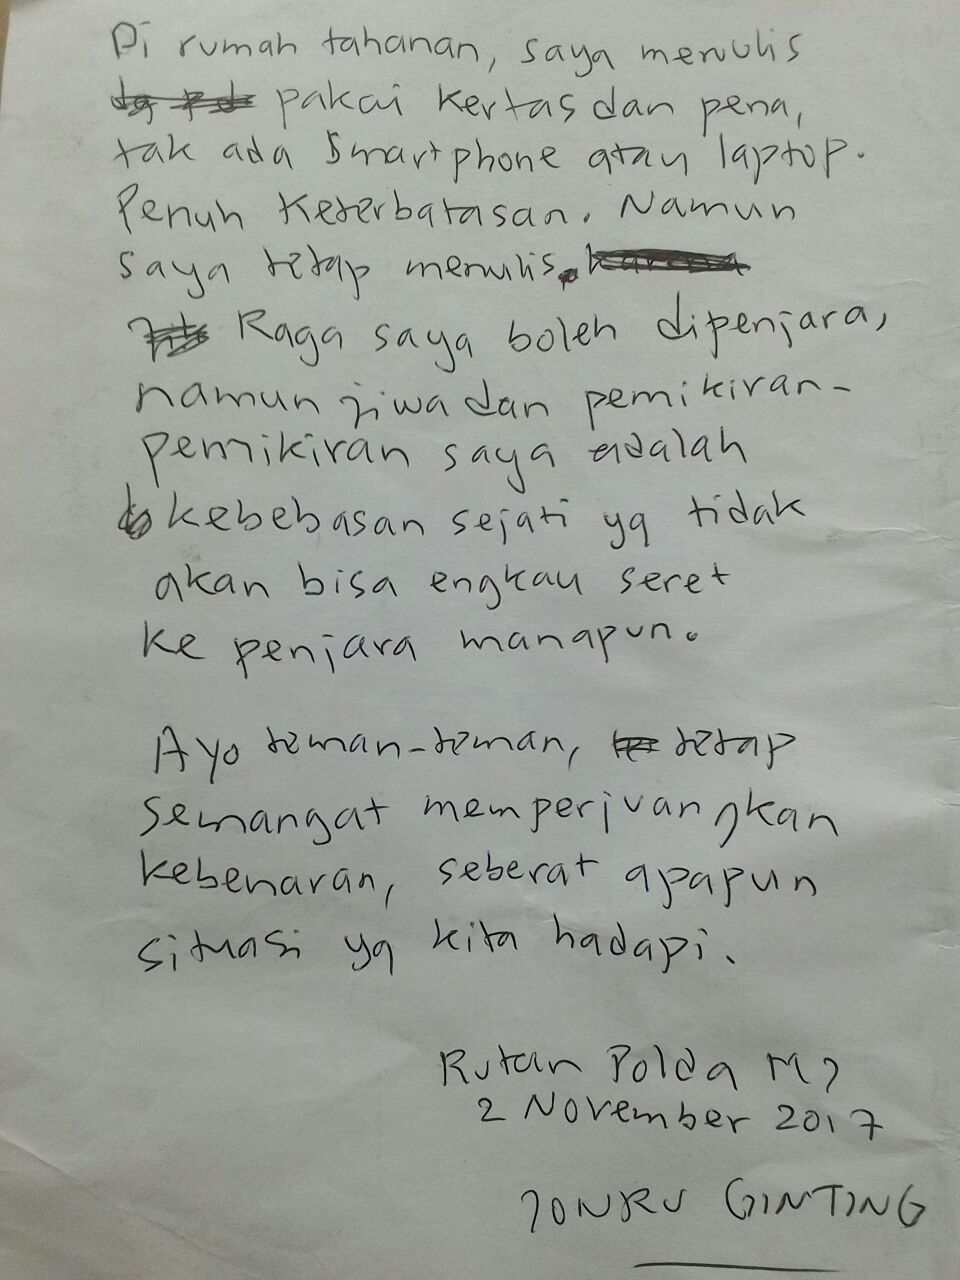 Di rumah tahanan, saya menulis
pakai kertas dan pena,
tak ada smartphone atau laptop.
Penuh keterbatasan. Namun
saya tetap menulis.
Raga saya boleh dipenjara,
namun jiwa dan pemikiran-
pemikiran saya adalah
kebebasan sejati yg tidak
akan bisa engkau seret
ke penjara manapun.
Ayo teman-teman, tetap
semangat memperjuangkan
kebenaran, seberat apapun
situasi yg kita hadapi.
Rutan Polda MJ
2 November 2017
JONRU GINTING